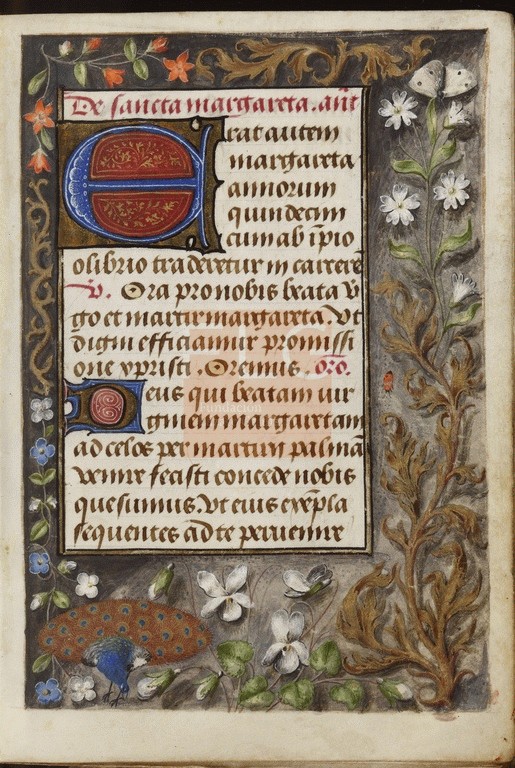 De sancta margareta. añt
Erat autem
margareta
annorum
quindecim
cum ab īpio
olibrio traderetur in carcere
v. Ora pro nobis beata v̄
go et martir margareta Vt
digni efficiamur promissi
one xpristi. Oremus. oro.
Deus qui beatam uir
ginem margaretam
ad celos per martirij palmā
venire fecisti concede nobis
quesumus. Vt eius exēpla
sequentes ad te peruenire
fundación